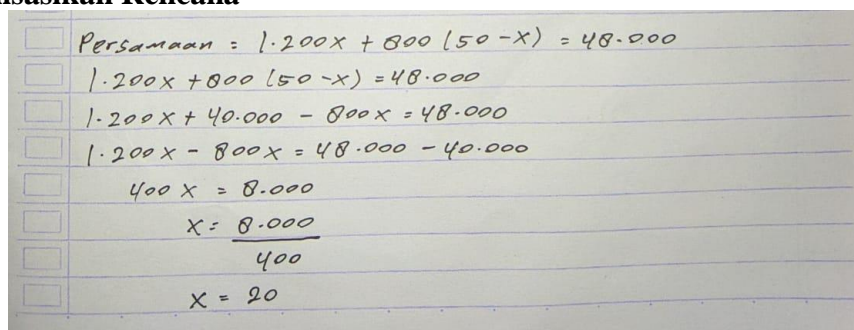 Persamaan = 1.200x + 800 (50 - x) = 48.000
1.200x + 800 (50 - x) = 48.000
1.200x + 40.000 - 800x = 48.000
1.200x - 800x = 48.000 - 40.000
400x = 8.000
x = 8.000
400
x = 20